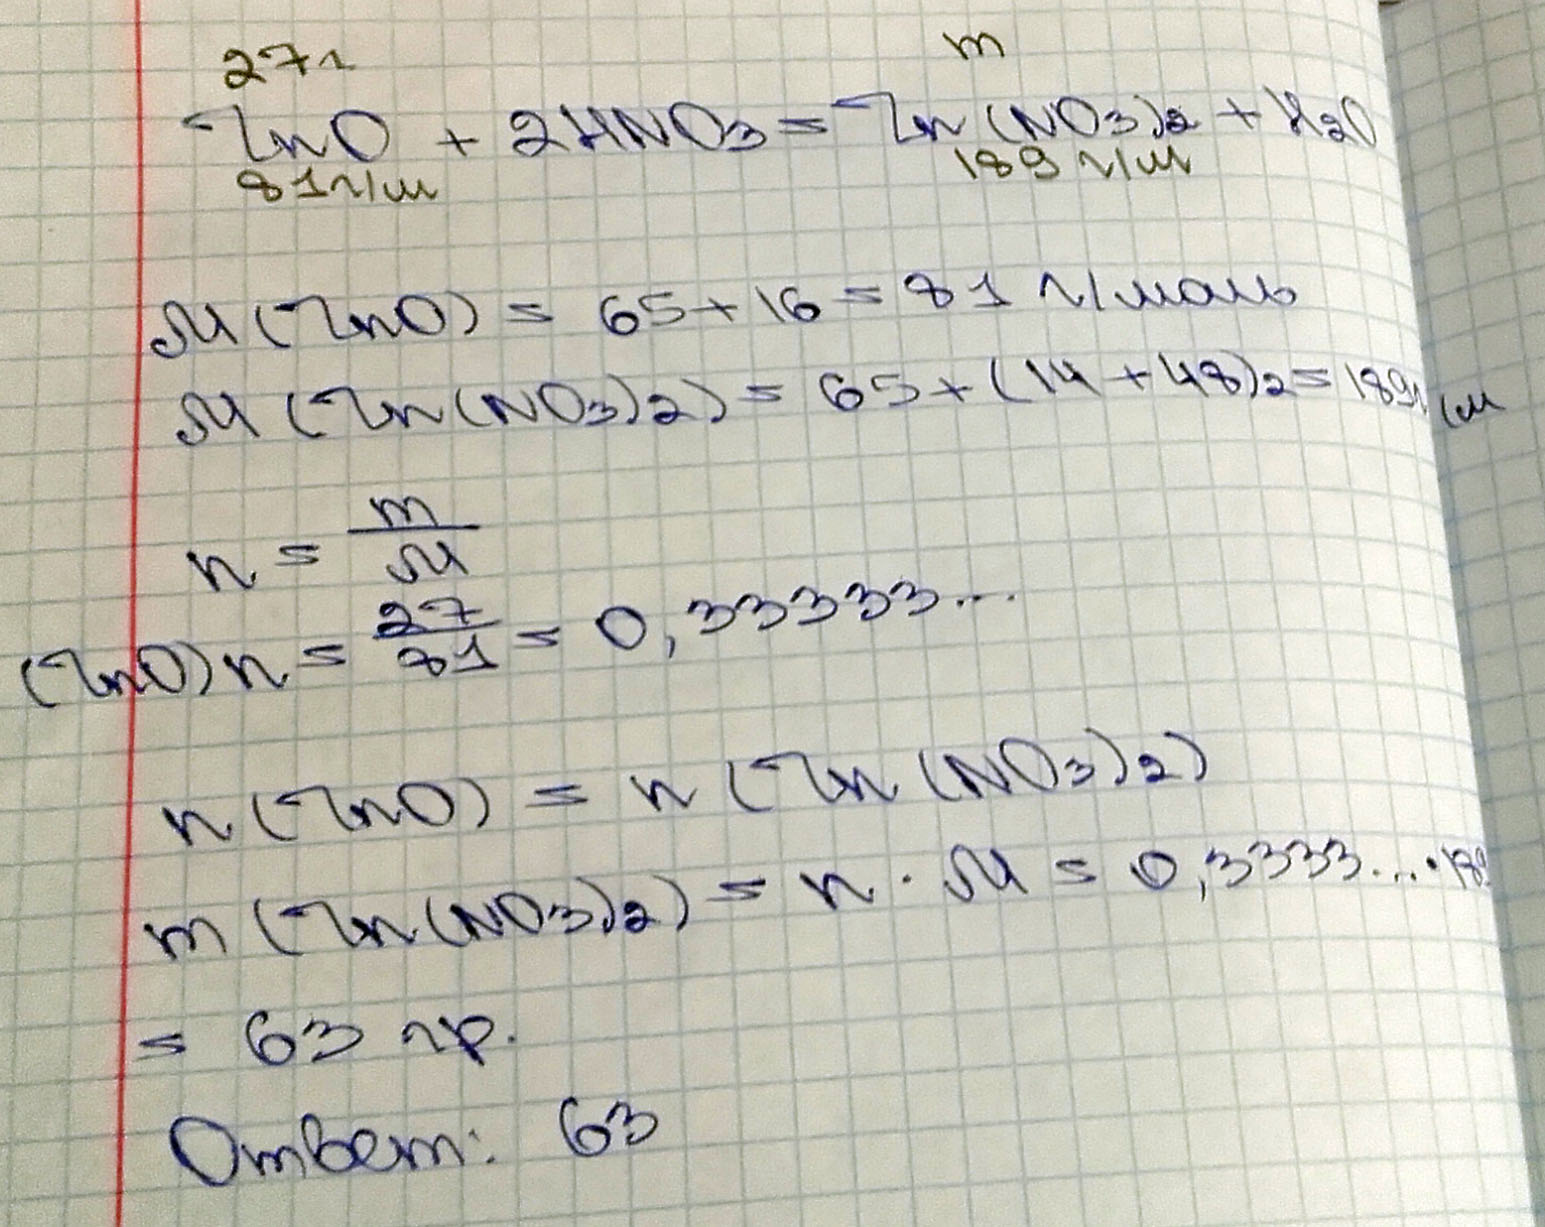 27г m
ZnO + 2HNO3 = Zn(NO3)2 + H2O
81г/м 189 г/м
M(ZnO) = 65+16 = 81 г/моль
M(Zn(NO3)2) = 65+(14+48)2=189г/м
n = m/M
(ZnO)n = 27/81 = 0,33333...
n(ZnO) = n(Zn(NO3)2)
m(Zn(NO3)2) = n · M = 0,3333...·189
= 63 гр.
Ответ: 63